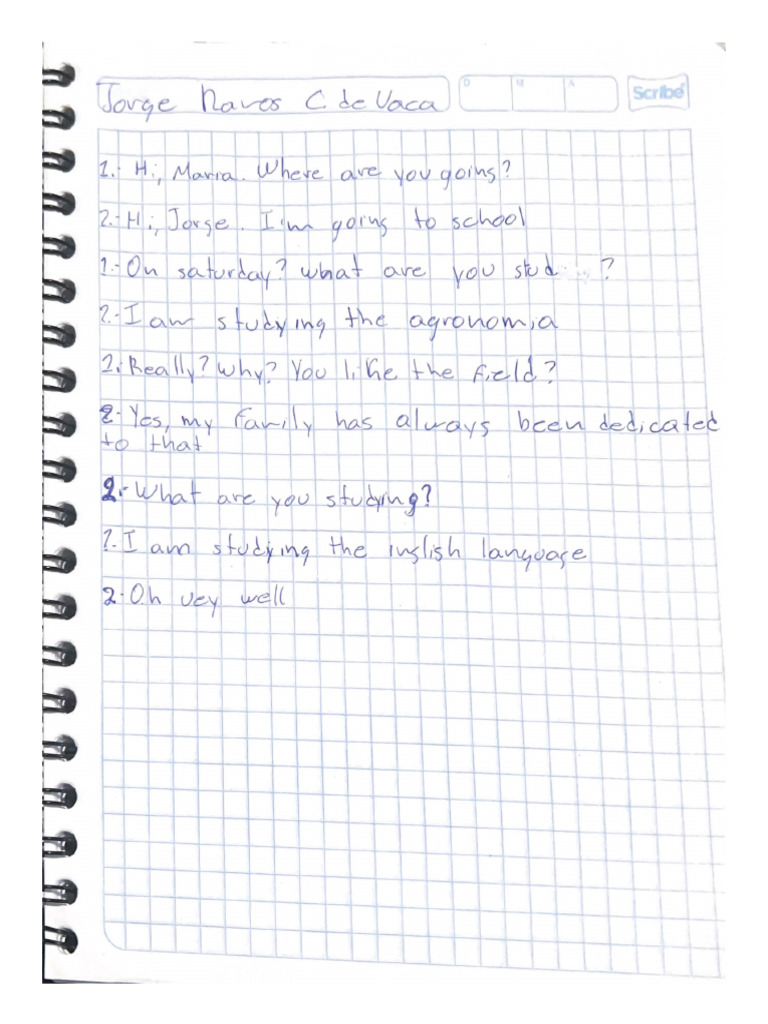 Jorge Naves C de Vaca
D M A
Scribe
1.- Hi, Maria. Where are you going?
2.- Hi, Jorge. I'm going to school
1.- On saturday? what are you stud ?
2.- I am studying the agronomia
1.- Really? why? You like the field?
2.- Yes, my family has always been dedicated
to that
2.- What are you studying?
1. I am studying the inglish language
2.- Oh vey well